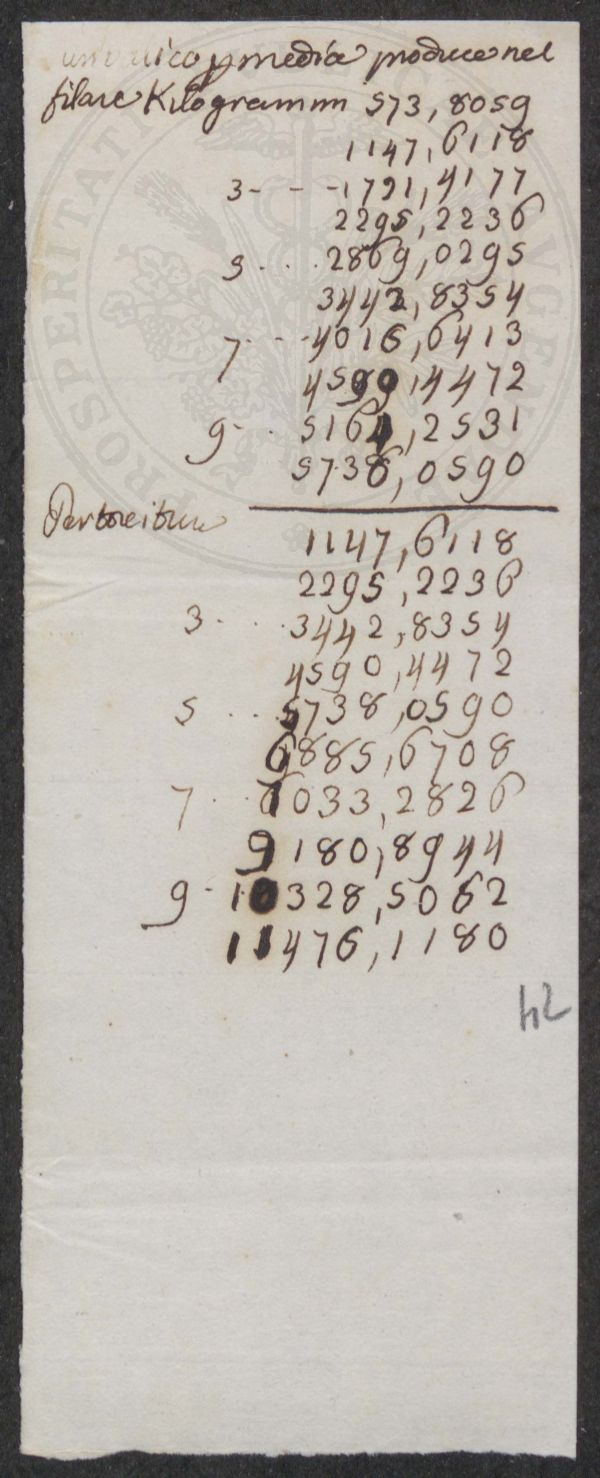 un valico p media produce nel
filare Kilogramm 573,8059
1147,6118
3 - - - 1721,4177
2295,2236
5 . . . . 2869,0295
3442,8354
7 . . . . 4016,6413
4590,4472
9 . . . 5164,2531
5738,0590
Per torcitura
1147,6118
2295,2236
3 . . . . 3442,8354
4590,4472
5 . . . 5738,0590
6885,6708
7 . . . 8033,2826
9180,8944
9 - 10328,5062
11476,1180
42
PROSPERITATI